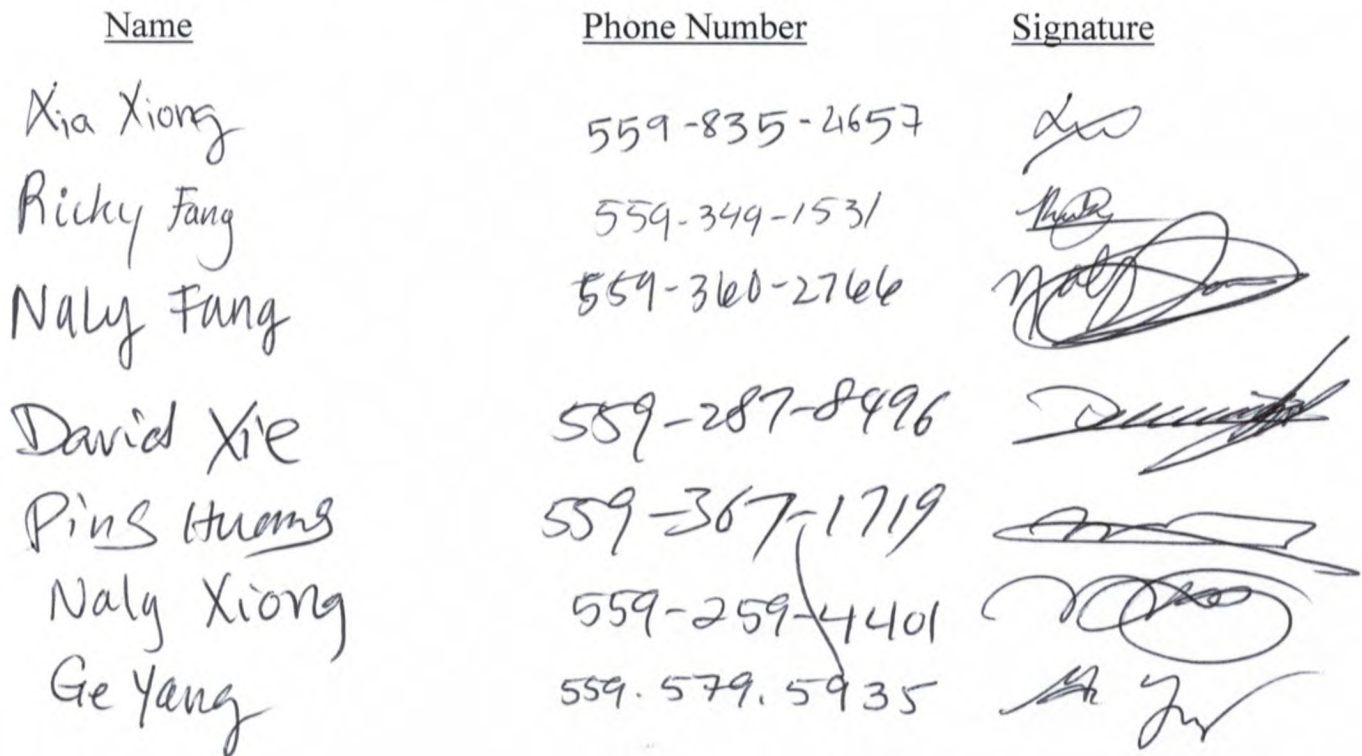 Name Phone Number Signature
Xia Xiong 559-835-4657
Ricky Fang 559-349-1531
Naly Fang 559-360-2766
David Xie 559-287-8496
Ping Huang 559-367-1719
Naly Xiong 559-259-4401
Ge Yang 559.579.5935